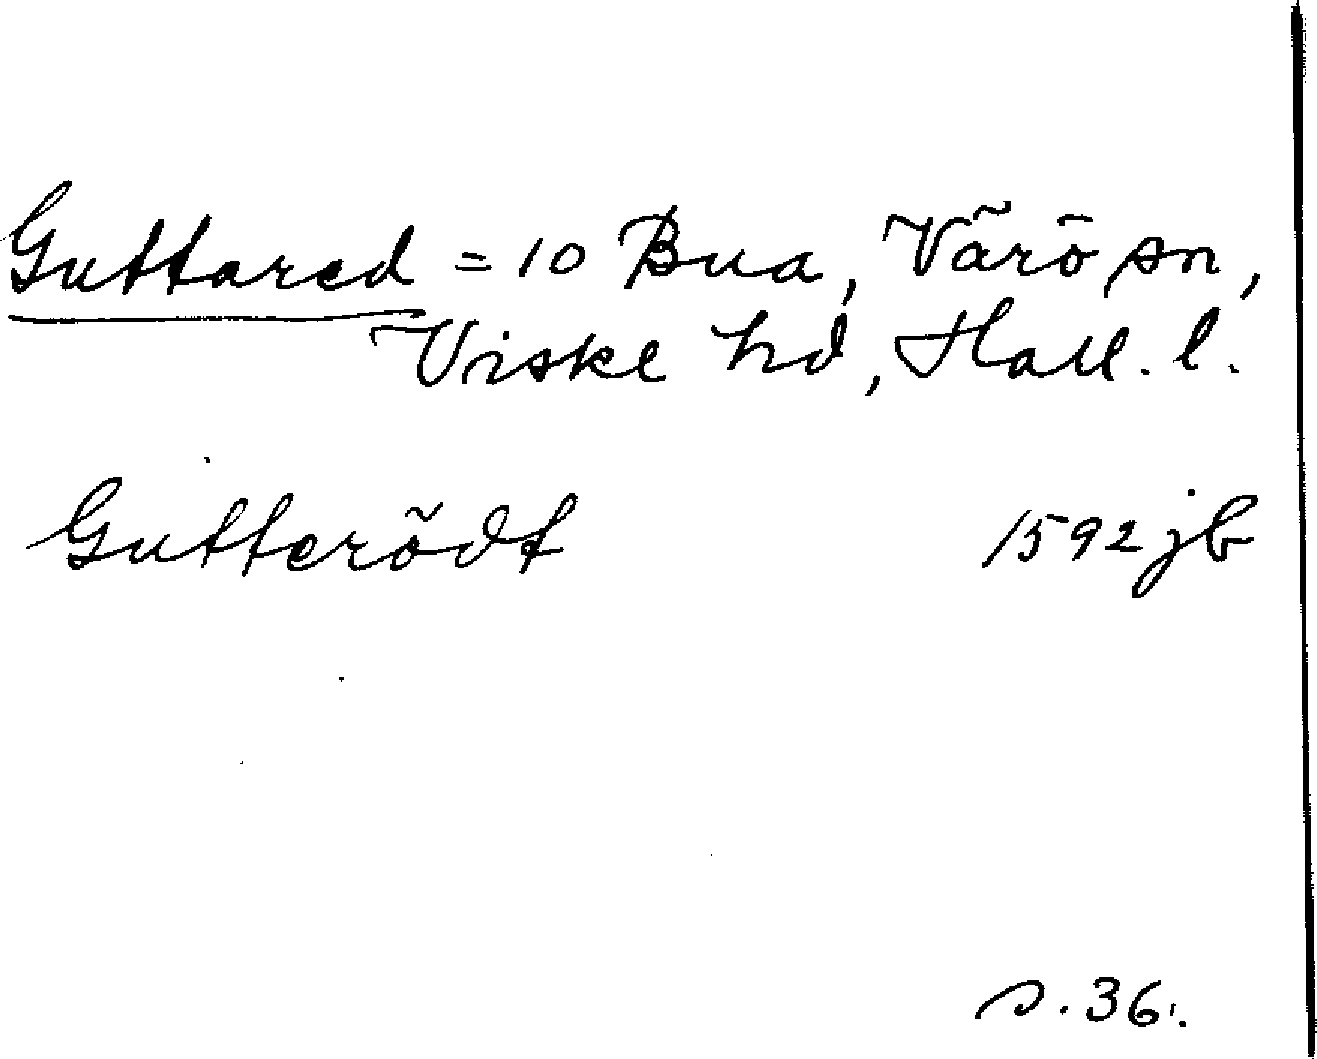 Guttared = 10 Bua, Värö sn,
Viske hd, Hall. l.
Gutterödt 1592 jb
s. 36.